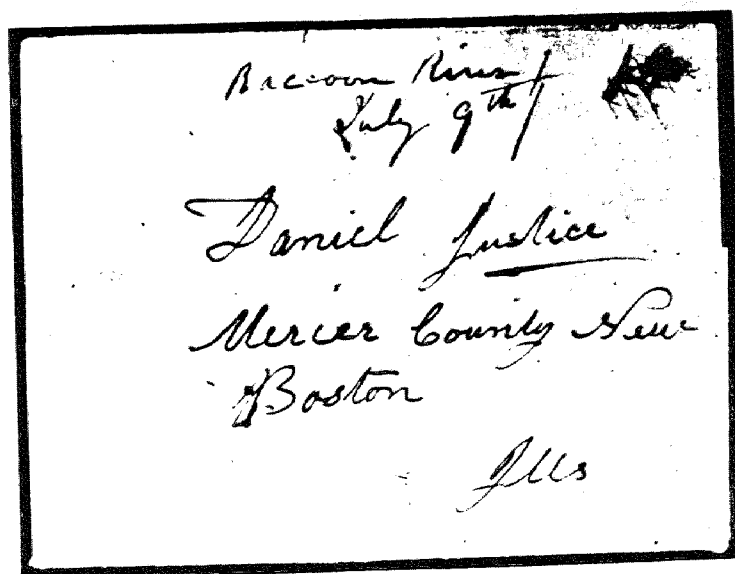 Raccoon River
July 9th
Daniel Justice
Mercer County New
Boston
Ills